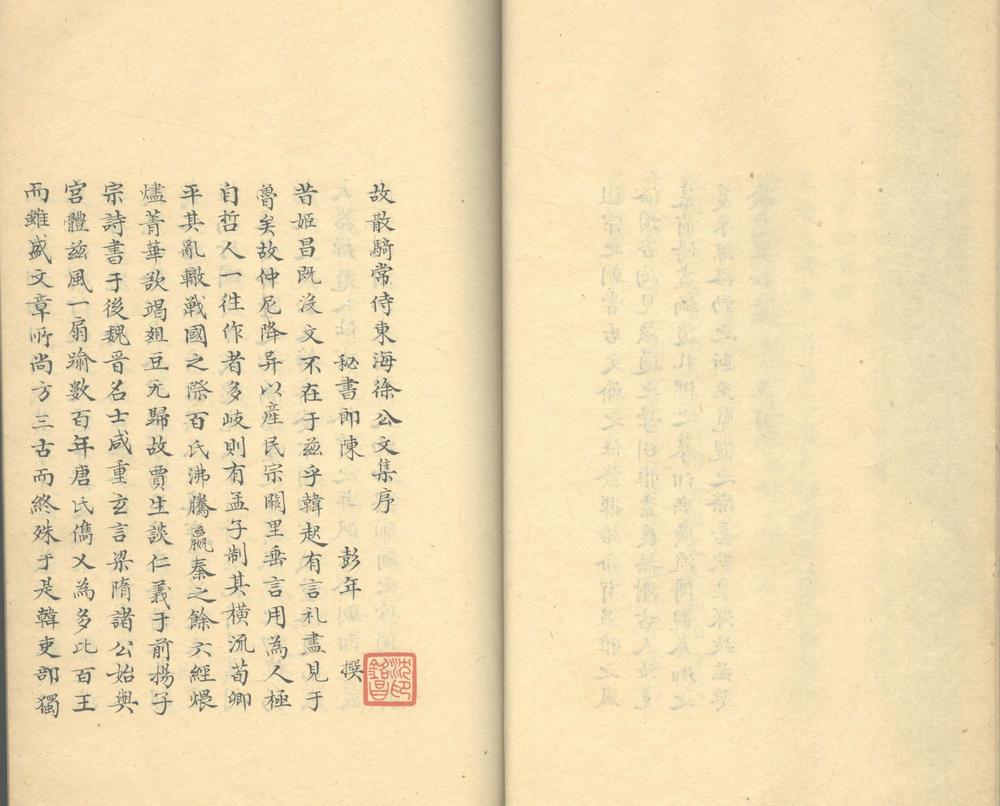 故散騎常侍東海徐公文集序
秘書郎陳 彭年 撰
昔姬昌既沒文不在于茲乎韓起有言礼盡見于
魯矣故仲尼降异以產民宗闕里垂言用為人極
自哲人一往作者多岐則有孟子制其橫流荀卿
平其亂轍戰國之際百氏沸騰嬴秦之餘六經煨
燼菁華欲竭俎豆无歸故賈生談仁義于前揚子
宗詩書于後魏晋名士咸重玄言梁隋諸公始與
宮體茲風一扇踰數百年唐氏儁乂為多比百王
而雖盛文章所尚方三古而終殊于是韓吏部獨
沈印銘昌